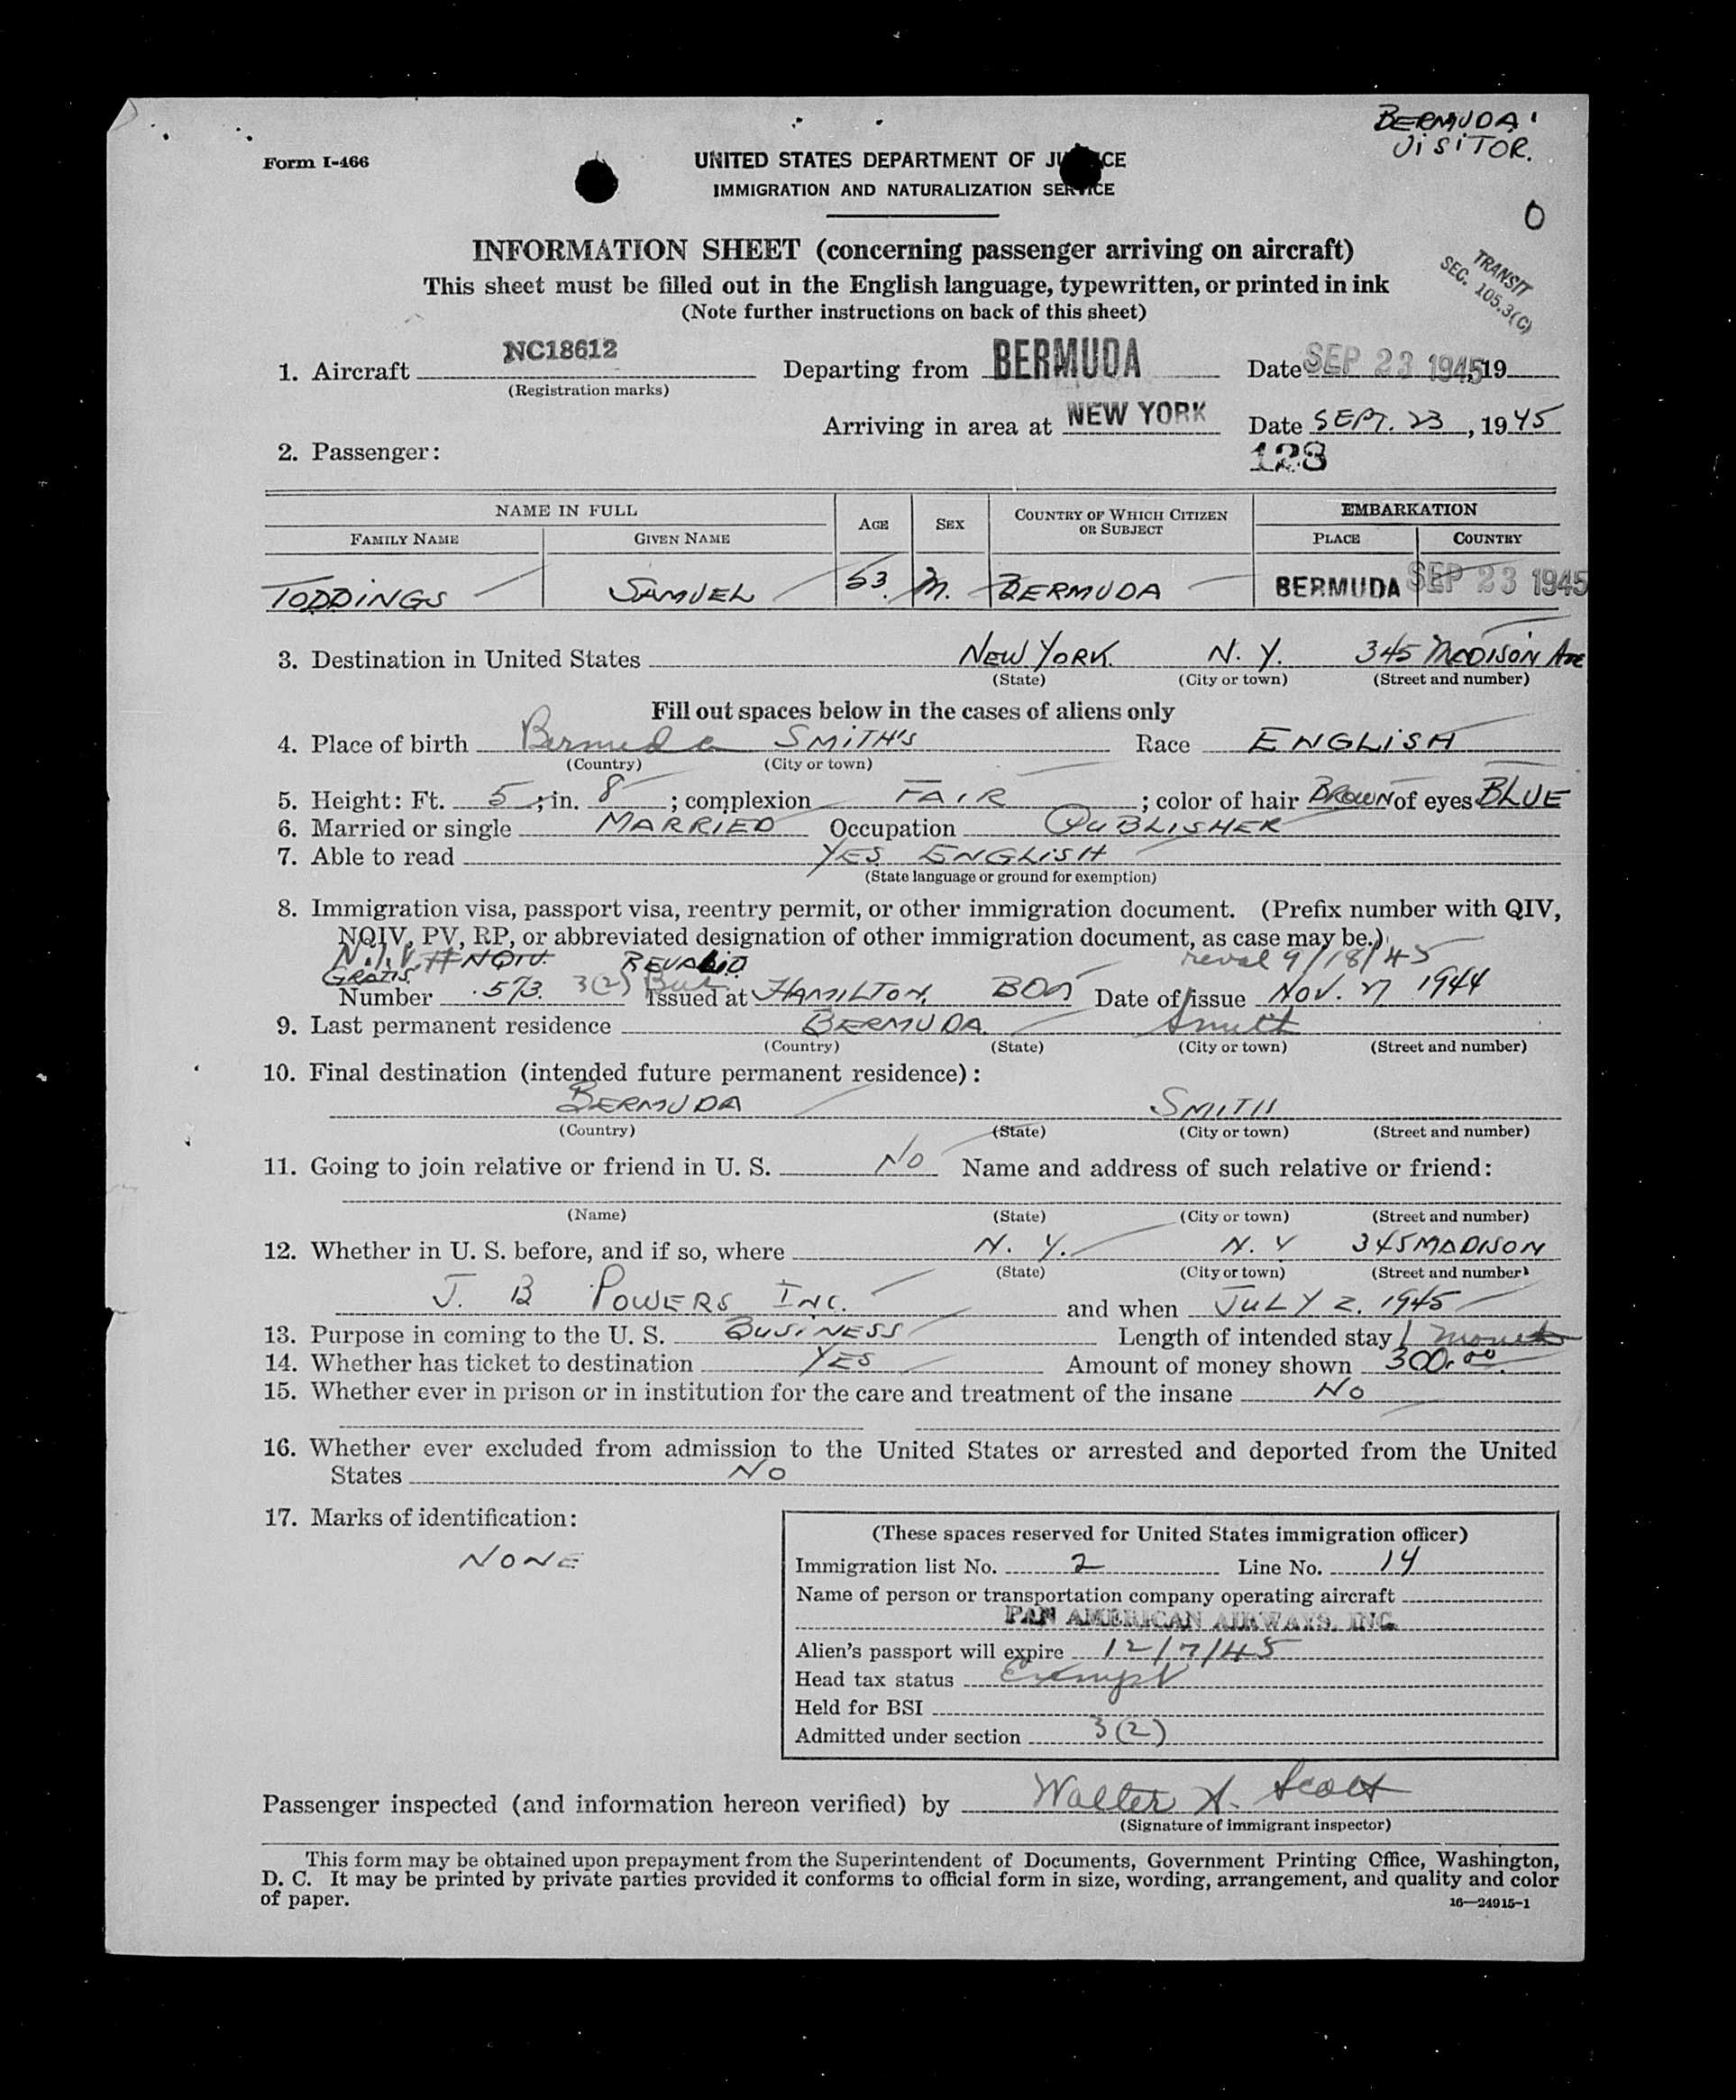 BERMUDA
VISITOR.
Form I-466
UNITED STATES DEPARTMENT OF JU CE
IMMIGRATION AND NATURALIZATION SERVICE
O
INFORMATION SHEET (concerning passenger arriving on aircraft)
TRANSIT
SEC. 105.3(C)
This sheet must be filled out in the English language, typewritten, or printed in ink
(Note further instructions on back of this sheet)
1. Aircraft NC18612 Departing from BERMUDA Date SEP 23 1945, 19
(Registration marks)
Arriving in area at NEW YORK Date SEPT. 23, 1945
2. Passenger: 128
NAME IN FULL AGE SEX COUNTRY OF WHICH CITIZEN OR SUBJECT EMBARKATION
FAMILY NAME GIVEN NAME PLACE COUNTRY
TODDINGS SAMUEL 53. M. BERMUDA BERMUDA SEP 23 1945
3. Destination in United States NEW YORK N. Y. 345 MADISON Ave
(State) (City or town) (Street and number)
Fill out spaces below in the cases of aliens only
4. Place of birth Bermuda SMITH'S Race ENGLISH
(Country) (City or town)
5. Height: Ft. 5; in. 8; complexion FAIR; color of hair BROWN of eyes BLUE
6. Married or single MARRIED Occupation PUBLISHER
7. Able to read YES ENGLISH
(State language or ground for exemption)
8. Immigration visa, passport visa, reentry permit, or other immigration document. (Prefix number with QIV,
NQIV, PV, RP, or abbreviated designation of other immigration document, as case may be.)
N.I.V. # NQIV. REVALID reval 9/18/45
GRATIS
Number 573. 3(2) Issued at HAMILTON, BDA Date of issue NOV. 27 1944
9. Last permanent residence BERMUDA Smith
(Country) (State) (City or town) (Street and number)
10. Final destination (intended future permanent residence):
BERMUDA SMITH
(Country) (State) (City or town) (Street and number)
11. Going to join relative or friend in U. S. No Name and address of such relative or friend:
(Name) (State) (City or town) (Street and number)
12. Whether in U. S. before, and if so, where N. Y. N. Y 345 MADISON
(State) (City or town) (Street and number)
J. B POWERS INC. and when JULY 2. 1945
13. Purpose in coming to the U. S. BUSINESS Length of intended stay 1 month
14. Whether has ticket to destination YES Amount of money shown 300.00
15. Whether ever in prison or in institution for the care and treatment of the insane No
16. Whether ever excluded from admission to the United States or arrested and deported from the United
States No
17. Marks of identification:
NONE
(These spaces reserved for United States immigration officer)
Immigration list No. 2 Line No. 14
Name of person or transportation company operating aircraft
PAN AMERICAN AIRWAYS, INC.
Alien's passport will expire 12/7/45
Head tax status Exempt
Held for BSI
Admitted under section 3(2)
Passenger inspected (and information hereon verified) by Walter A. Scott
(Signature of immigrant inspector)
This form may be obtained upon prepayment from the Superintendent of Documents, Government Printing Office, Washington,
D. C. It may be printed by private parties provided it conforms to official form in size, wording, arrangement, and quality and color
of paper. 16—24915-1